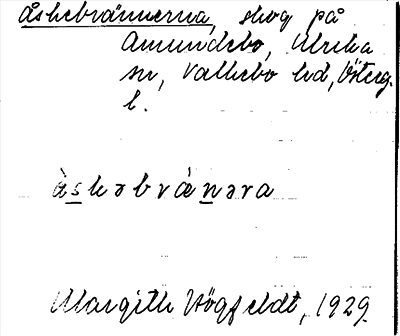 Åskebrännerna, skog på
Amundebo, Ulrika
sn, Valkebo hd, Österg.
l.
àskəbrä́nəra
Margith Högfeldt, 1929.